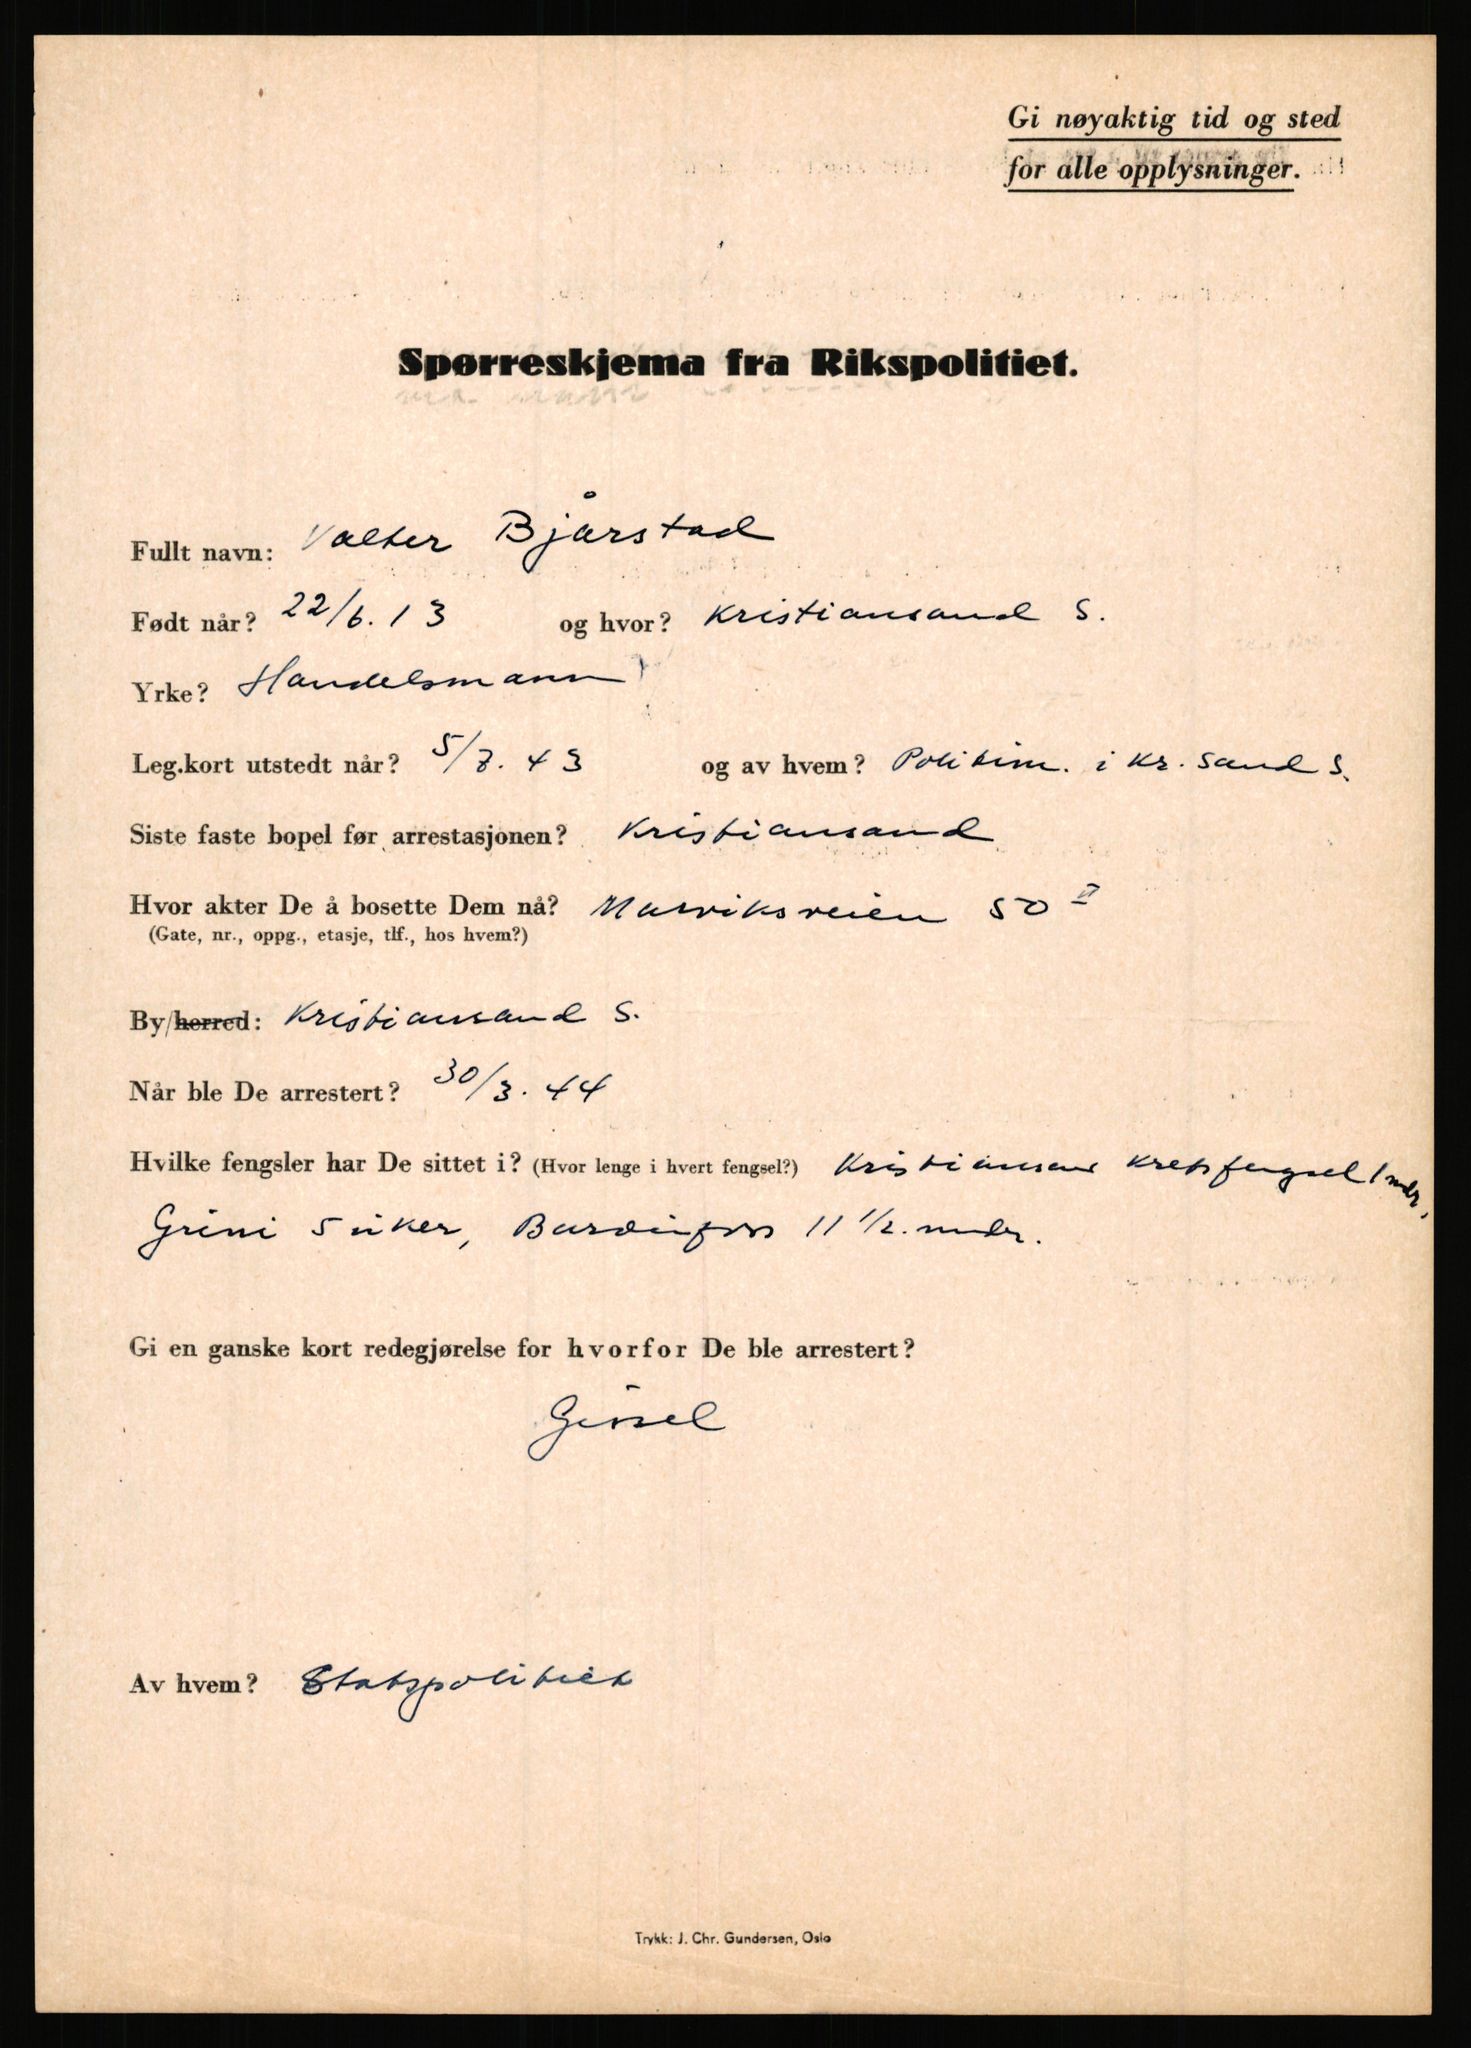 Gi nøyaktig tid og sted
for alle opplysninger.
Spørreskjema fra Rikspolitiet.
Fullt navn: Valter Bjårstad
Født når? 22/6. 13 og hvor? Kristiansand S.
Yrke? Handelsmann
Leg.kort utstedt når? 5/7. 43 og av hvem? Politim. i Kr. sand S.
Siste faste bopel før arrestasjonen? Kristiansand
Hvor akter De å bosette Dem nå? Marviksveien 50 II
(Gate, nr., oppg., etasje, tlf., hos hvem?)
By/herred: Kristiansand S.
Når ble De arrestert? 30/3. 44
Hvilke fengsler har De sittet i? (Hvor lenge i hvert fengsel?) Kristiansand Kretsfengsel 1 mdr,
Grini 5 uker, Bardufoss 11 1/2. mndr.
Gi en ganske kort redegjørelse for hvorfor De ble arrestert?
Gissel
Av hvem? Statspolitiet
Trykk: J. Chr. Gundersen, Oslo